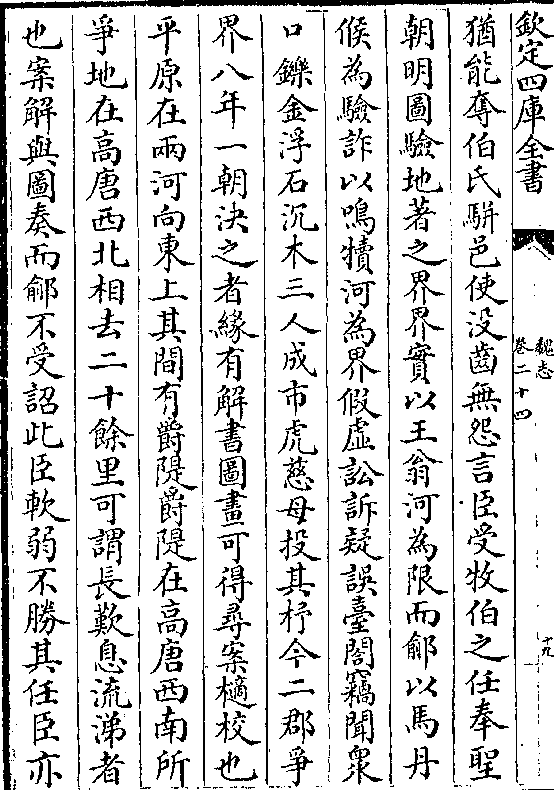 欽定四庫全書
魏志
卷二十四
十九
猶能奪伯氏駢邑使没齒無怨言臣受牧伯之任奉聖
朝明圖驗地著之界界實以王翁河為限而鄃以馬丹
候為驗詐以鳴犢河為界假虚訟訴疑誤臺閤竊聞衆
口鑠金浮石沉木三人成市虎慈母投其杼今二郡爭
界八年一朝決之者緣有解書圖畫可得尋案擿校也
平原在兩河向東上其間有爵隄爵隄在高唐西南所
爭地在高唐西北相去二十餘里可謂長歎息流涕者
也案解與圖奏而鄃不受詔此臣軟弱不勝其任臣亦